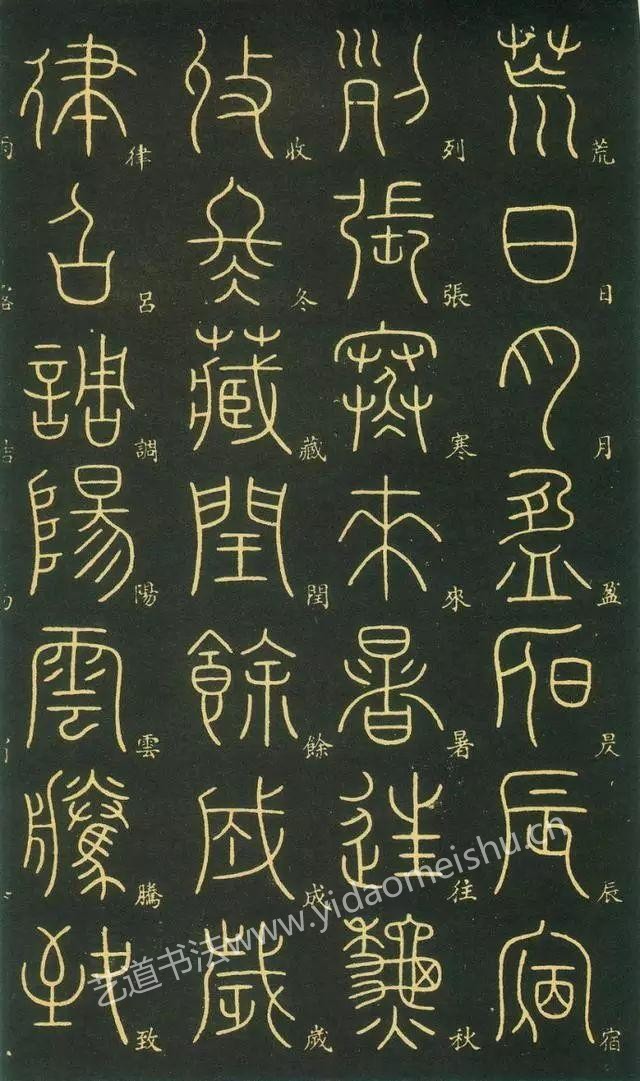 荒日月盈昃辰宿
列張寒來暑往秋
收冬藏閏餘成歲
律呂調陽雲騰致
艺道书法www.yidaomeishu.cn